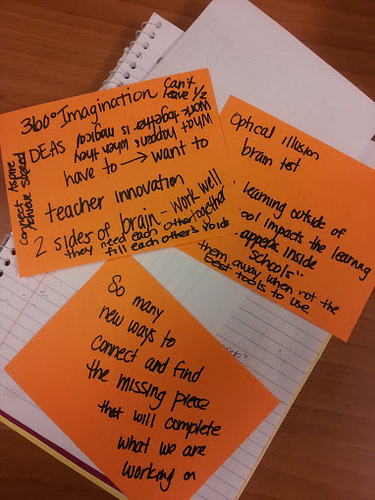 360° Imagination
Can't
leave 1/2
IDEAS
What happens when they
work together is magical
have to → want to
teacher innovation
2 sides of brain - work well
together
they need each other
fill each other's voids
Connect Aspire
Achieve Succeed
Optical illusion
brain test
learning outside of
ool impacts the learning
appens inside
schools"
them away when not the
best tools to use
So many
new ways to
connect and find
the missing piece
that will complete
what we are
working on